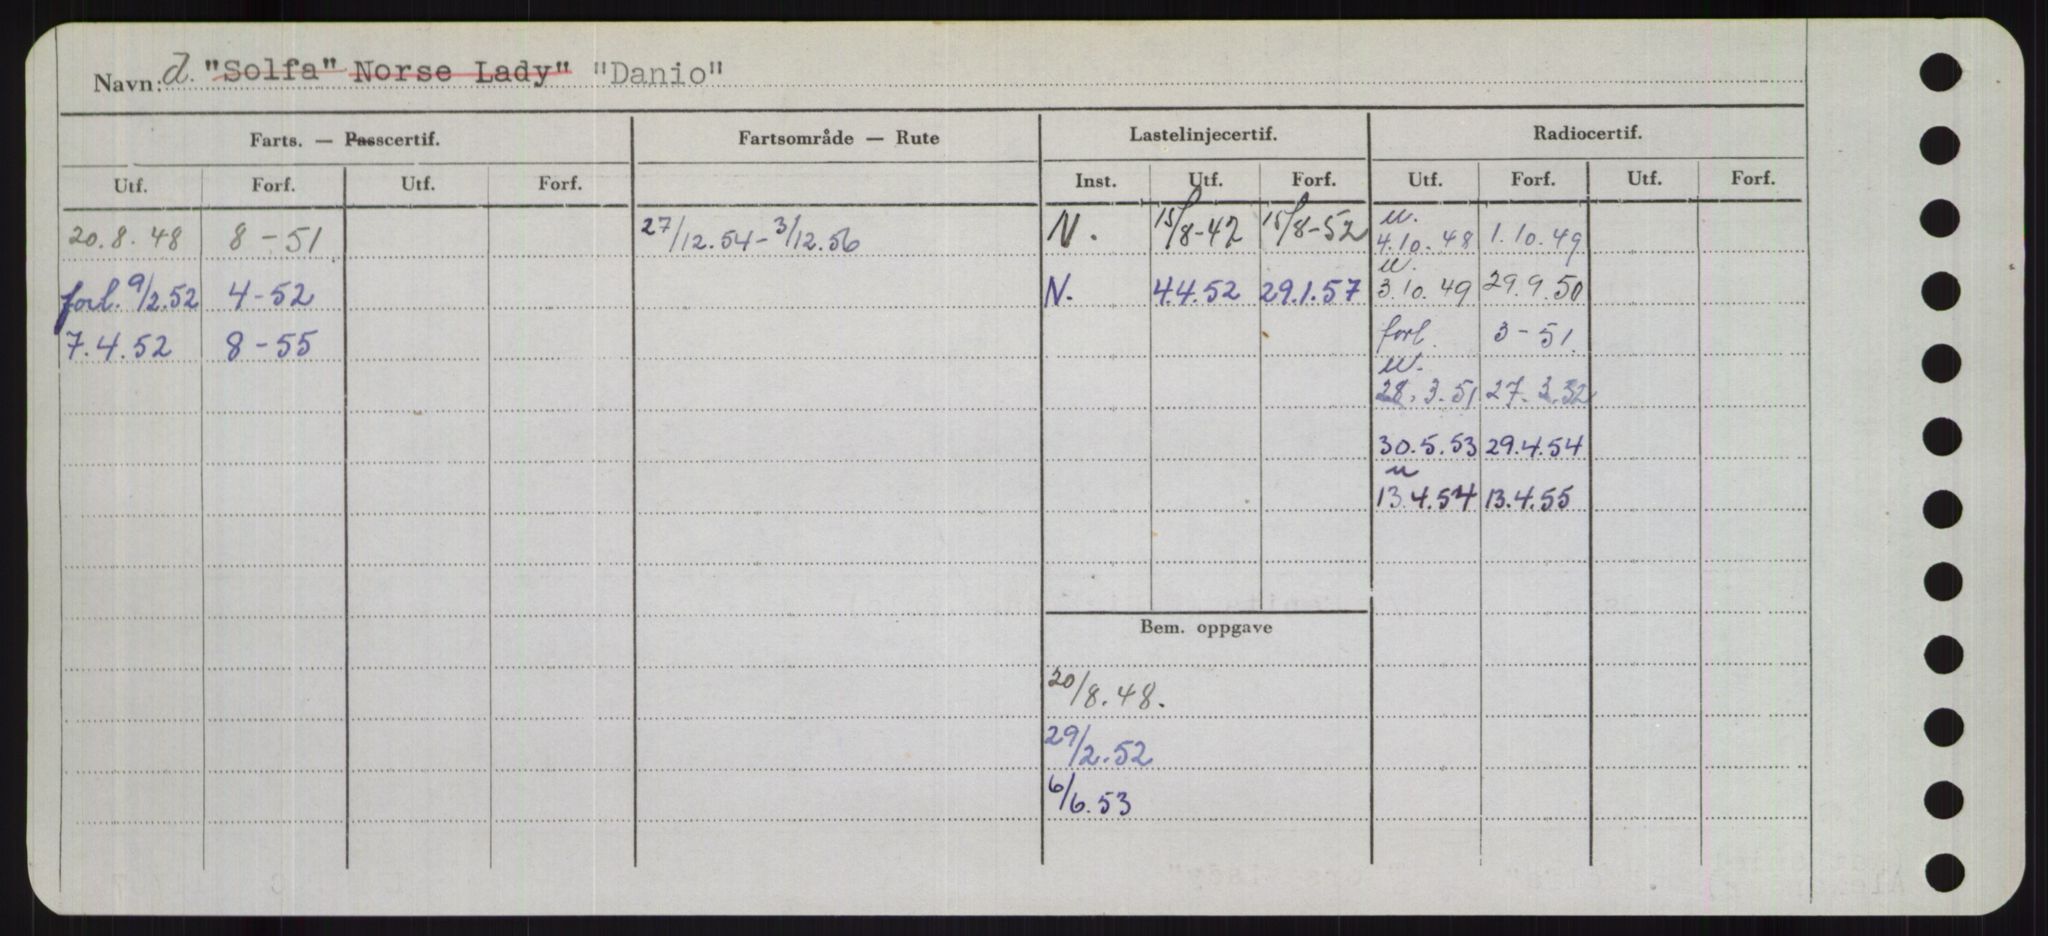 Navn: d. "Solfa" Norse Lady" "Danio"
Farts. — Passcertif. Fartsområde — Rute Lastelinjecertif. Radiocertif.
Utf. Forf. Utf. Forf. Inst. Utf. Forf. Utf. Forf. Utf. Forf.
20.8.48 8-51 27/12.54-3/12.56 N. 15/8-47 15/8-52 u. 4.10.48 1.10.49
forl. 9/2.52 4-52 N. 4.4.52 29.1.57 u. 3.10.49 29.9.50
7.4.52 8-55 forl. 3-51
u. 28.3.51 27.3.52
30.5.53 29.4.54
u 13.4.54 13.4.55
Bem. oppgave
20/8.48.
29/2.52
6/6.53